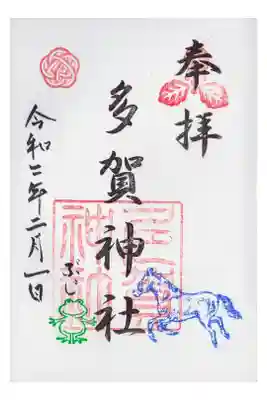 奉拝
多賀神社
令和二年二月一日
ぶじ